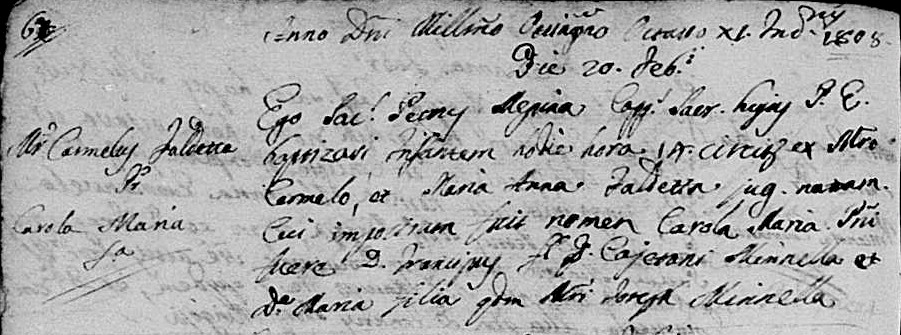 Anno Dni Millmo Octingmo Octavo XI. Indnis 1808.
Die 20. Feb.i
Mr Carmelus Faldetta
Pr
Carola Maria
fa
Ego Sac. Petrus Messina Capp. Sacr. hujus P. E.
baptizavi Infantem hodie hora 14. circiter ex Mro
Carmelo, et Maria Anna Faldetta jug. natam.
Cui impositum fuit nomen Carola Maria. Pni
fuere D. Franciscus fs Di Cajetani Minnella et
Da Maria filia qdm Mri Joseph Minnella